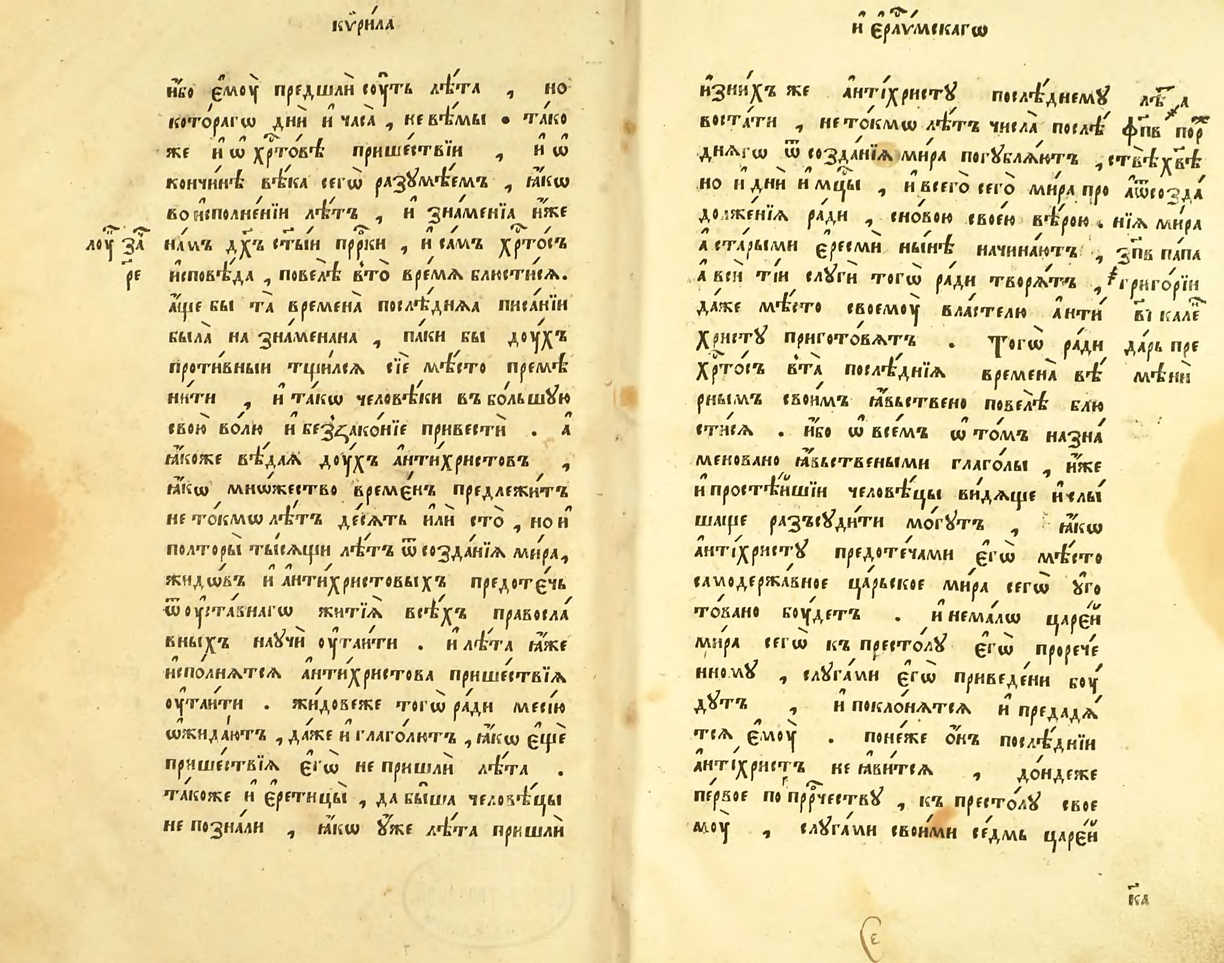 кѷри́ла
и҆́бо є҆моу̀ предшлѝ соу́ть лѣ́та , но
кото́рагѡ днѝ и҆ часа̀ , не вѣ́мы • та́ко
же и҆ ѡ҆ хр҇то́вѣ прише́ствїи , и҆ ѡ҆
кончи́нѣ вѣ́ка сегѡ̀ разꙋмѣ́емъ , ꙗ҆́кѡ
во и҆сполне́нїи лѣ́тъ , и҆ зна́менїа и҆́же
на́мъ дх҃ъ ст҃ы́и прⷪ҇ки , и҆ са́мъ хр҇то́съ
и҆сповѣ́да , повелѣ̀ в̾то̀ вре́мѧ блюсти́сѧ.
а҆́ще бы та̀ времена̀ послѣ́днѧа писа́нїи
была̀ на зна́менана , па́ки бы доу́хъ
проти́вныи тщи́лсѧ сїѐ мѣ́сто премѣ
ни́ти , и҆ та́кѡ человѣ́ки въ бо́льшꙋю
свою̀ во́лю и҆ беззако́нїе привестѝ . а҆
ꙗ҆́коже вѣ́даѧ доу́хъ а҆нти́христовъ ,
ꙗ҆́кѡ мнѡ́жество време́нъ предлежи́тъ
не то́кмѡ лѣ́тъ де́сѧть и҆лѝ сто̀ , но и҆
полторы̀ ты́сѧщи лѣ́тъ ѿ созда́нїѧ ми́ра,
жидѡ́въ и҆ а҆нти́христовыхъ предоте́чь
ѿ оу҆ста́внагѡ житїѧ̀ всѣ́хъ правосла́
вныхъ наꙋчѝ оу҆таи́ти . и҆ лѣ́та ꙗ҆́же
и҆спо́лнѧтсѧ а҆нти́христова прише́ствїѧ
оу҆таи́ти . жи́довеже тогѡ̀ ра́ди меси́ю
ѡ҆жида́ютъ , да́же и҆ глаго́лютъ , ꙗ҆́кѡ є҆щѐ
прише́ствїѧ є҆гѡ̀ не пришлѝ лѣ́та .
та́коже и҆ є҆ретицы̀ , да бы́ша человѣ́цы
не позна́ли , ꙗ҆́кѡ ᲂу҆же лѣ́та пришлѝ
лоу҇ за҇
ре
и҆ є҆рⷭ҇ли́мскагѡ
и҆зни́хъ же а҆нті́христꙋ послѣ́днемꙋ
воста́ти , не то́кмѡ лѣ́тъ числа̀ послѣ́
днѧгѡ ѿ созда́нїѧ ми́ра погꙋблѧ́ютъ ,
но и҆ днѝ и҆ мц҃ы , и҆ всего̀ сего̀ ми́ра про
долже́нїѧ ра́ди , сно́вою свое́ю вѣ́рою .
а҆ ста́рыми є҆ресмѝ ны́нѣ начина́ютъ ,
а҆ всѝ ті́и слꙋгѝ тогѡ̀ ра́ди творѧ́тъ ,
да́же мѣ́сто своемоу̀ вла́стелю а҆нти́
христꙋ пригото́вѧтъ . Тогѡ̀ ра́ди
хр҇то́съ в̾та̀ послѣ́днїѧ времена̀ вѣ́
рнымъ свои́мъ ꙗ҆́вьствено повелѣ̀ блю
сти́сѧ . и҆́бо ѡ҆ все́мъ ѡ҆ то́мъ назна́
меновано ꙗ҆́вьствеными глаго́лы , и҆́же
и҆ простѣ́йшїи человѣ́цы ви́дѧще и҆ слы́
шаще разъсꙋди́ти мо́гꙋтъ , ꙗ҆́кѡ
а҆нті́христꙋ предоте́чами є҆гѡ̀ мѣ́сто
самодержа́вное ца́рьское ми́ра сегѡ̀ ᲂу҆го
то́вано боу́детъ . и҆ нема́лѡ царе́й
ми́ра сегѡ̀ къ престо́лꙋ є҆гѡ̀ прорече́
нномꙋ , слꙋга́ми є҆гѡ̀ приведе́ни боу́
дꙋтъ , и҆ поклонѧ́тсѧ и҆ предадѧ́
тсѧ є҆моу̀ . поне́же ѻ҆́нъ послѣ́днїи
а҆нті́христъ не ꙗ҆ви́тсѧ , до́ндеже
пе́рвое по прⷪ҇ро́чествꙋ , къ престо́лꙋ свое
моу̀ , слꙋга́ми свои́ми се́дмь царе́й
лѣ҇ а
фпв пор҇
ствѣ хвѣ
а ѿ созда́
нїѧ ми́ра
зпв па́па
григо́рїи
гі кале҇
да́рь пре
мѣнѝ
ка